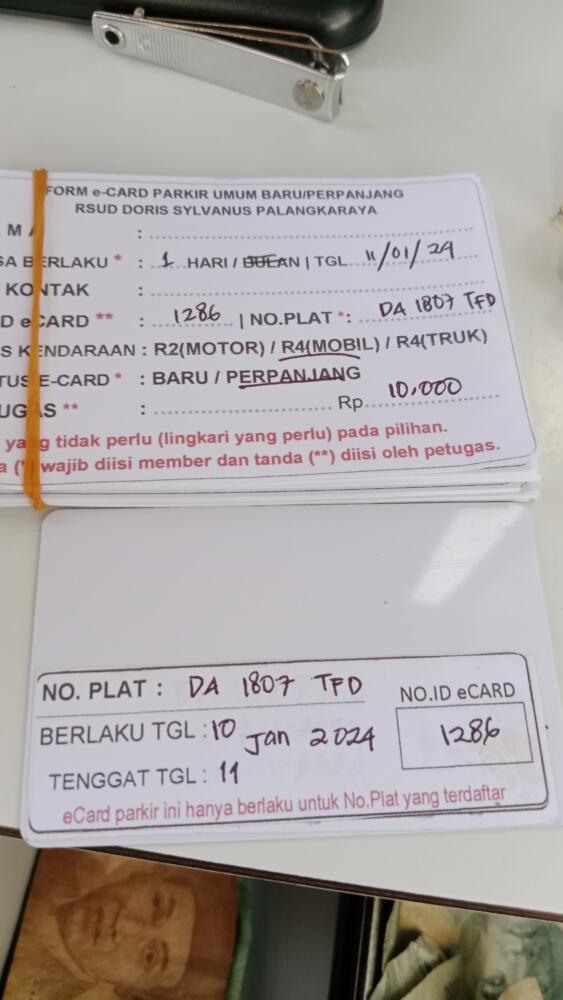 FORM e-CARD PARKIR UMUM BARU/PERPANJANG
RSUD DORIS SYLVANUS PALANGKARAYA
M A :
SA BERLAKU * : 1 HARI / BULAN | TGL 11/01/24
KONTAK :
D eCARD ** : 1286 | NO.PLAT *: DA 1807 TFD
S KENDARAAN : R2(MOTOR) / R4(MOBIL) / R4(TRUK)
TUS E-CARD * : BARU / PERPANJANG
UGAS ** : Rp 10.000
yang tidak perlu (lingkari yang perlu) pada pilihan.
a (*) wajib diisi member dan tanda (**) diisi oleh petugas.
NO. PLAT : DA 1807 TFD
NO.ID eCARD
BERLAKU TGL : 10 Jan 2024
1286
TENGGAT TGL : 11
eCard parkir ini hanya berlaku untuk No.Plat yang terdaftar